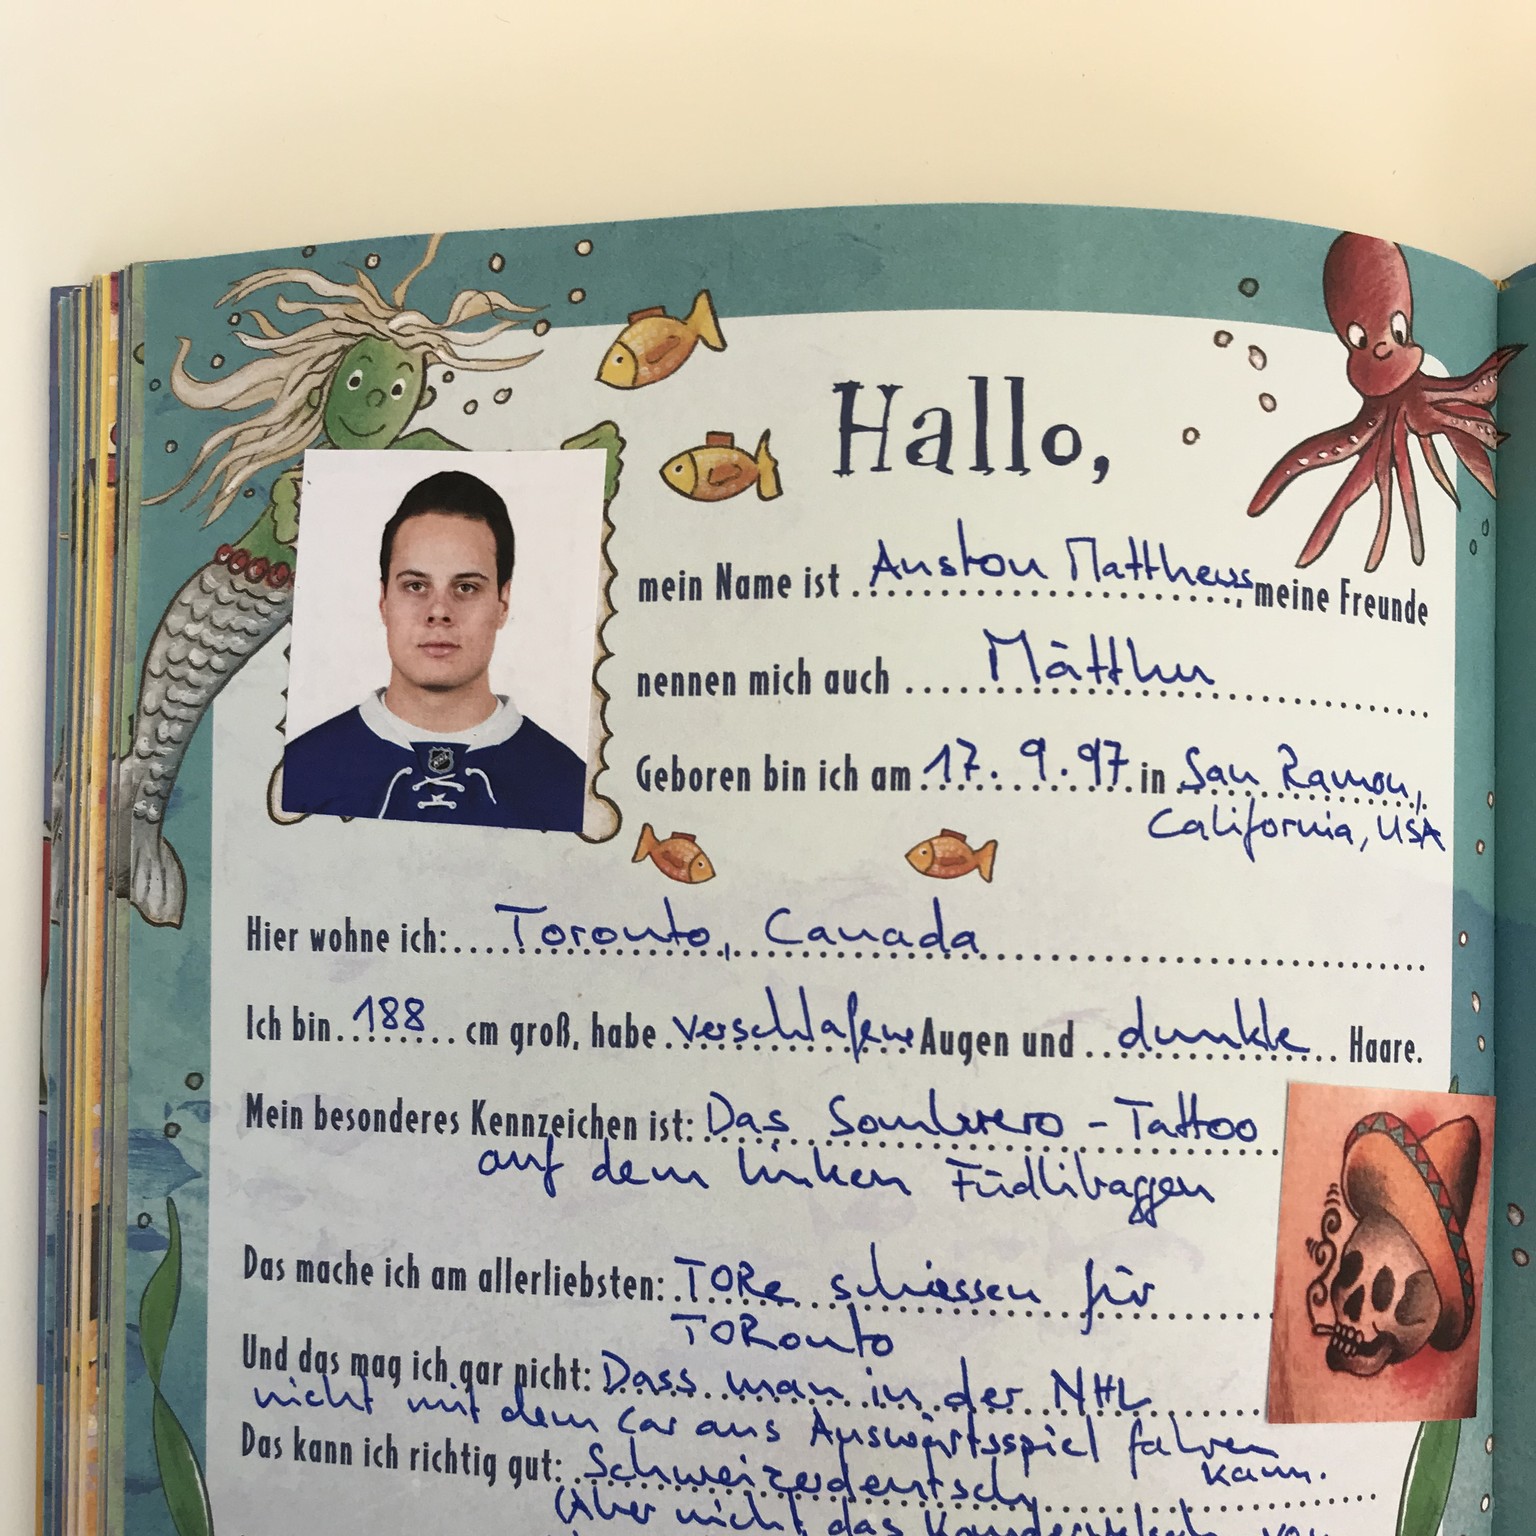 Hallo,
mein Name ist Auston Matthews, meine Freunde
nennen mich auch Mätthu
Geboren bin ich am 17.9.97 in San Ramon,
California, USA
Hier wohne ich: Toronto, Canada
Ich bin 188 cm groß, habe verschlafene Augen und dunkle Haare.
Mein besonderes Kennzeichen ist: Das Sombrero-Tattoo
auf dem linken Füdlibaggen
Das mache ich am allerliebsten: TORe schiessen für
TORonto
Und das mag ich gar nicht: Dass man in der NHL
nicht mit dem Car ans Auswärtsspiel fahren
kann.
Das kann ich richtig gut: Schweizerdeutsch
(Aber nicht das von